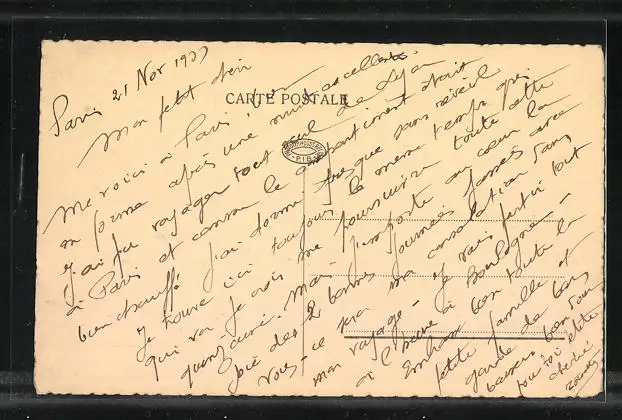 CARTE POSTALE
Paris 21 Nov 1933
Mon petit
Me voici à Paris
en forme après une nuit excellente.
J'ai pu voyager tout seul de Lyon
à Paris et comme le compartiment était
bien chauffé j'ai dormi presque sans réveil
Je trouve ici toujours le même temps gris
qui va je crois me poursuivre toute cette
quinzaine. Mais j'emporte au cœur la
joie des 2 bonnes journées passées avec
vous - ce sera ma consolation dans
mon voyage - Je vais partir tout
à l'heure à Boulogne -
Embrasse bien toute la
petite famille et
garde de bons
baisers bien
pour toi petite
chérie